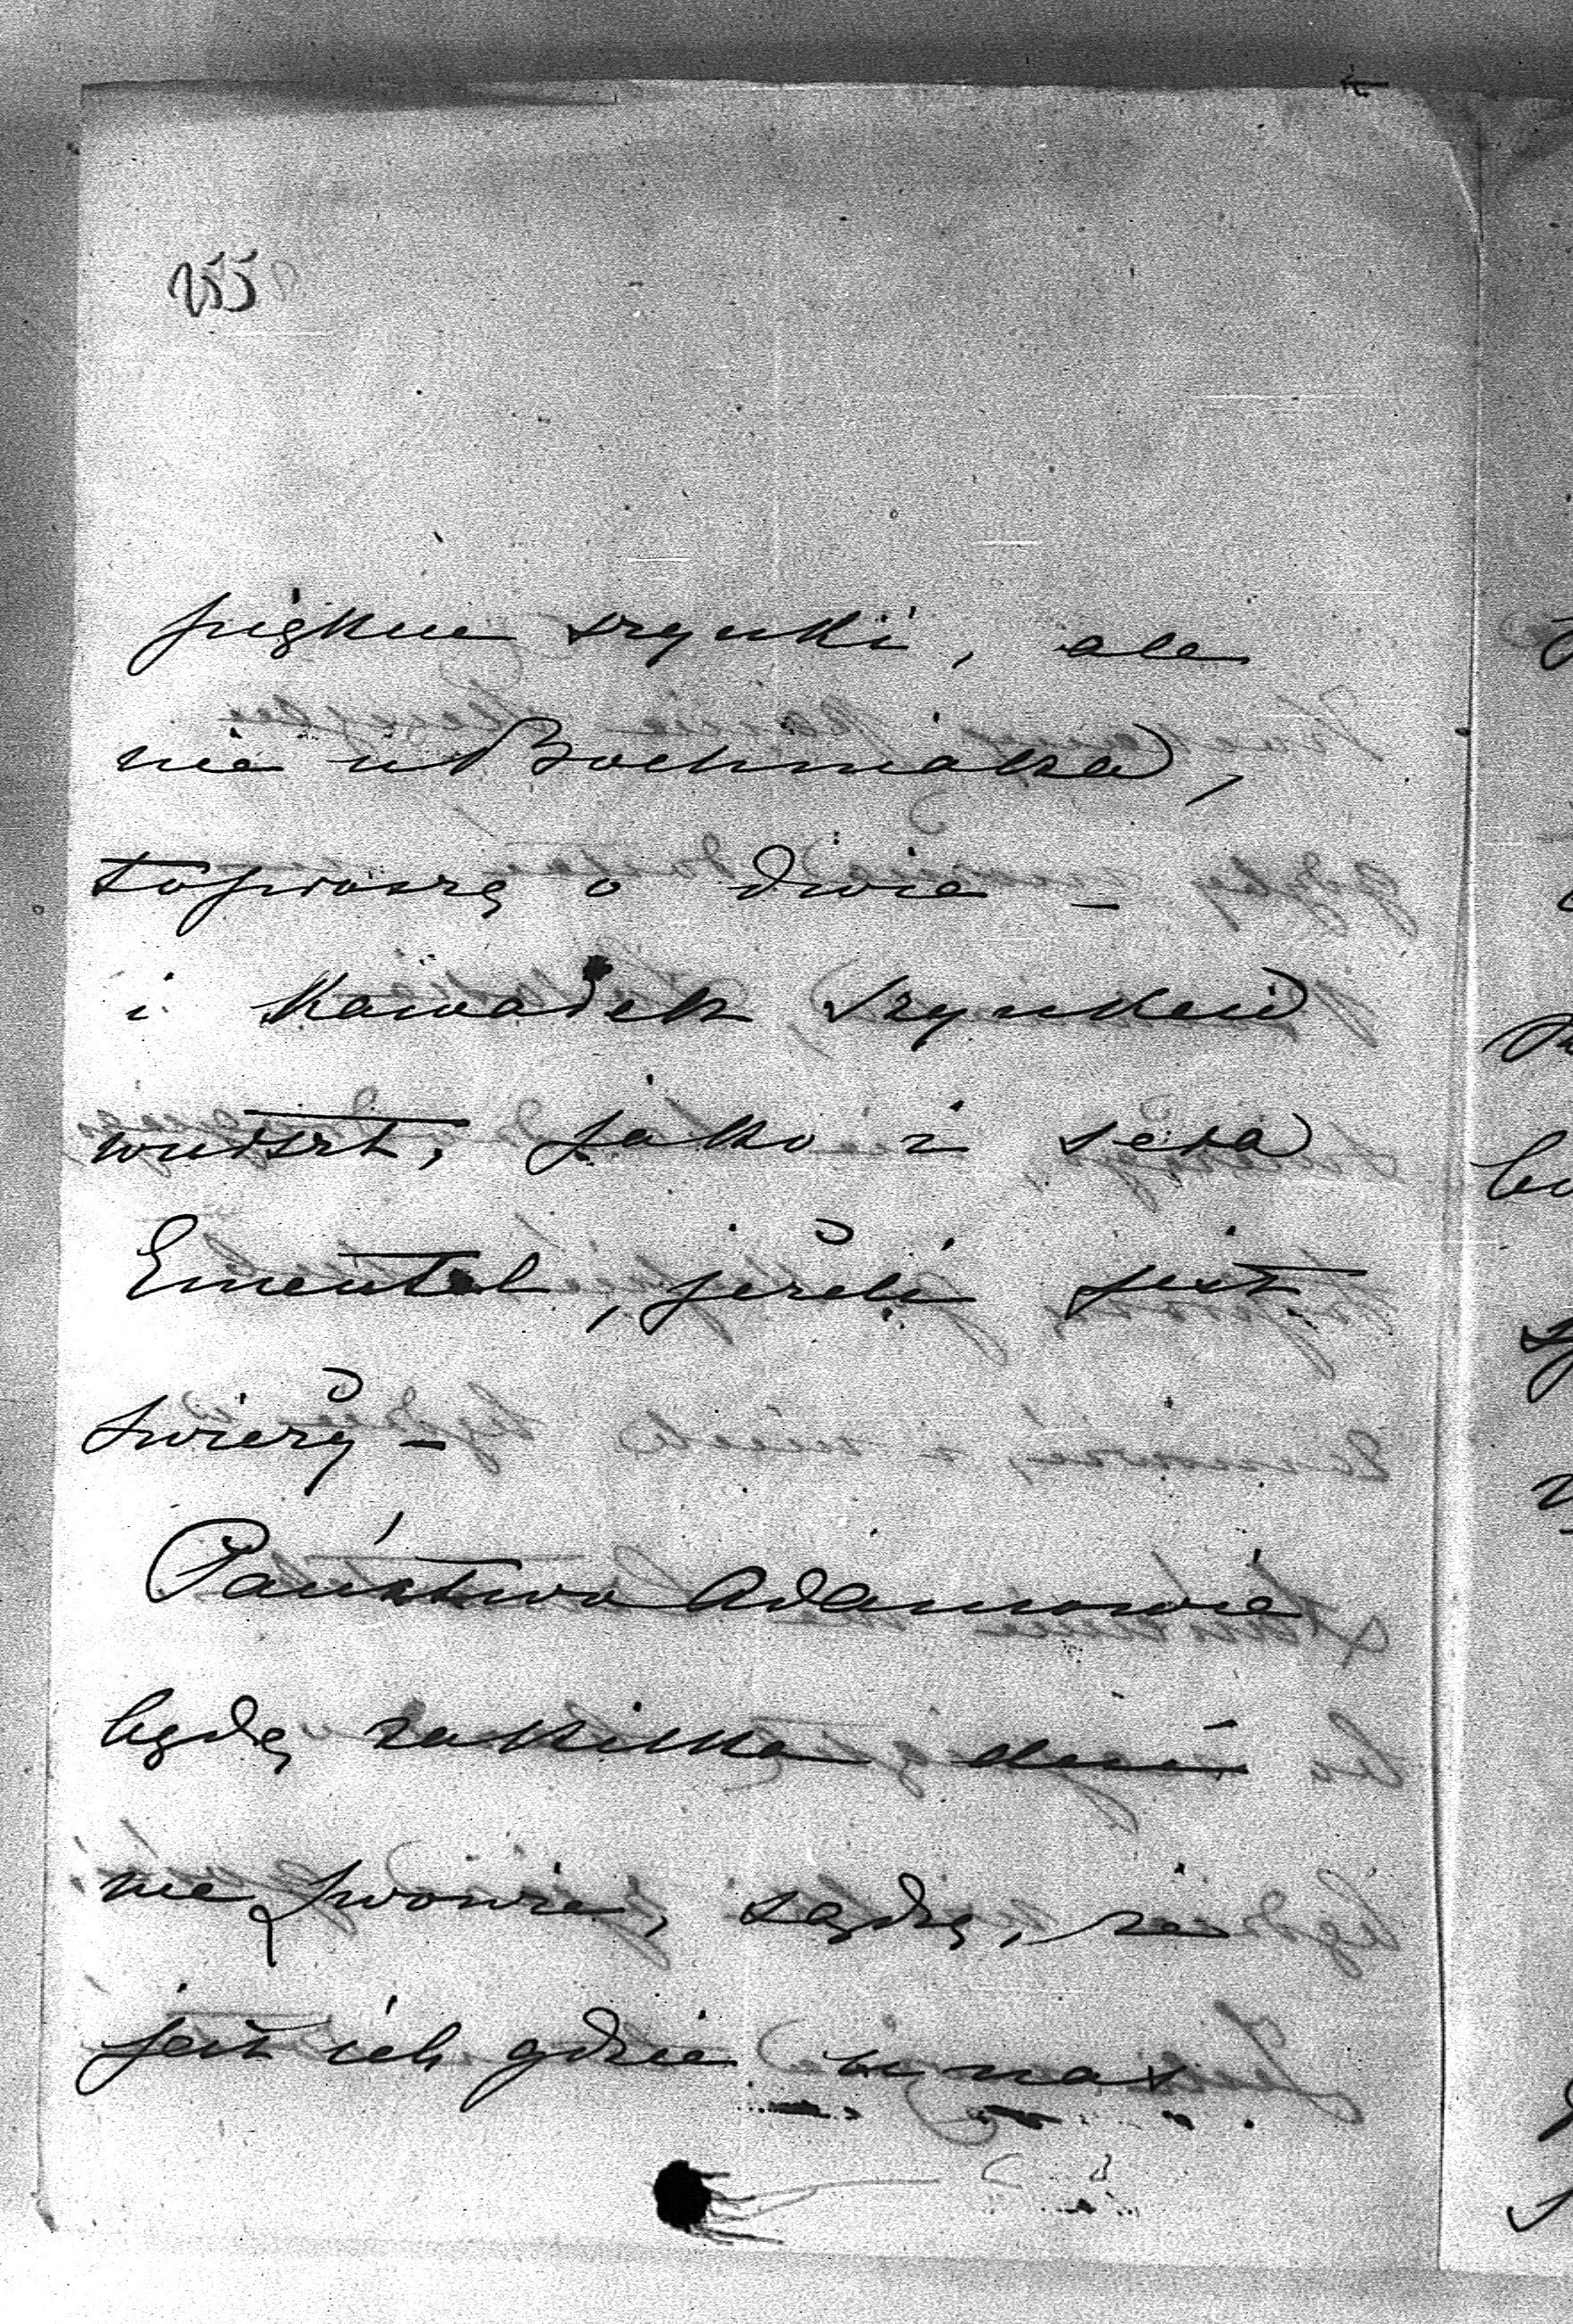 255
piękne szynki, ale
nie u Bochniaka,
to proszę o dwie –
i kawałek szynken
wurszt, jako i sera
Emental, jeżeli jest
świeży –
Państwo Adamowie
będą za kilka dni
we Lwowie, sądzę, że
jest ich gdzie u nas